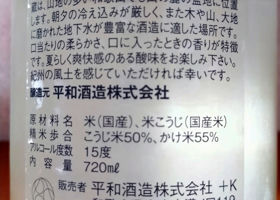 に位置
します。朝夕の冷え込みが厳しく、また木や山、大地
に磨かれた地下水が豊富な酒造に適した場所です。
口当たりの柔らかさ、口に入ったときの香りが特徴
です。夏らしく爽快感のある酸味をお楽しみ下さい。
紀州の風土を感じていただければ幸いです。
醸造元 平和酒造株式会社
原材料名 米(国産)、米こうじ(国産米)
精米歩合 こうじ米50%、かけ米55%
アルコール度数 15度
内容量 720ml
販売者 平和酒造株式会社 +K